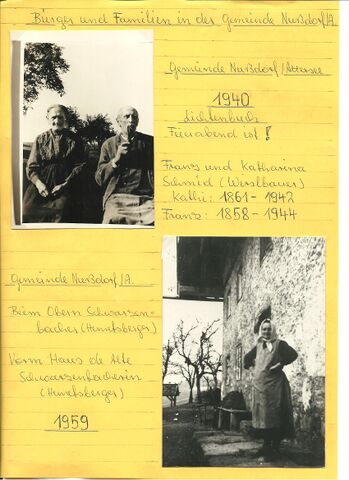 Bürger und Familien in der Gemeinde Nußdorf/A.
Gemeinde Nußdorf/Attersee
1940
Lichtenbuch
Feierabend ist!
Franz und Katharina
Schmid (Werlbauer)
Kathi: 1861 - 1942
Franz: 1858 - 1944
Gemeinde Nußdorf/A.
Beim Obern Schwarzen-
bacher (Hemetsberger)
Vorm Haus de Alte
Schwarzenbacherin
(Hemetsberger)
1959